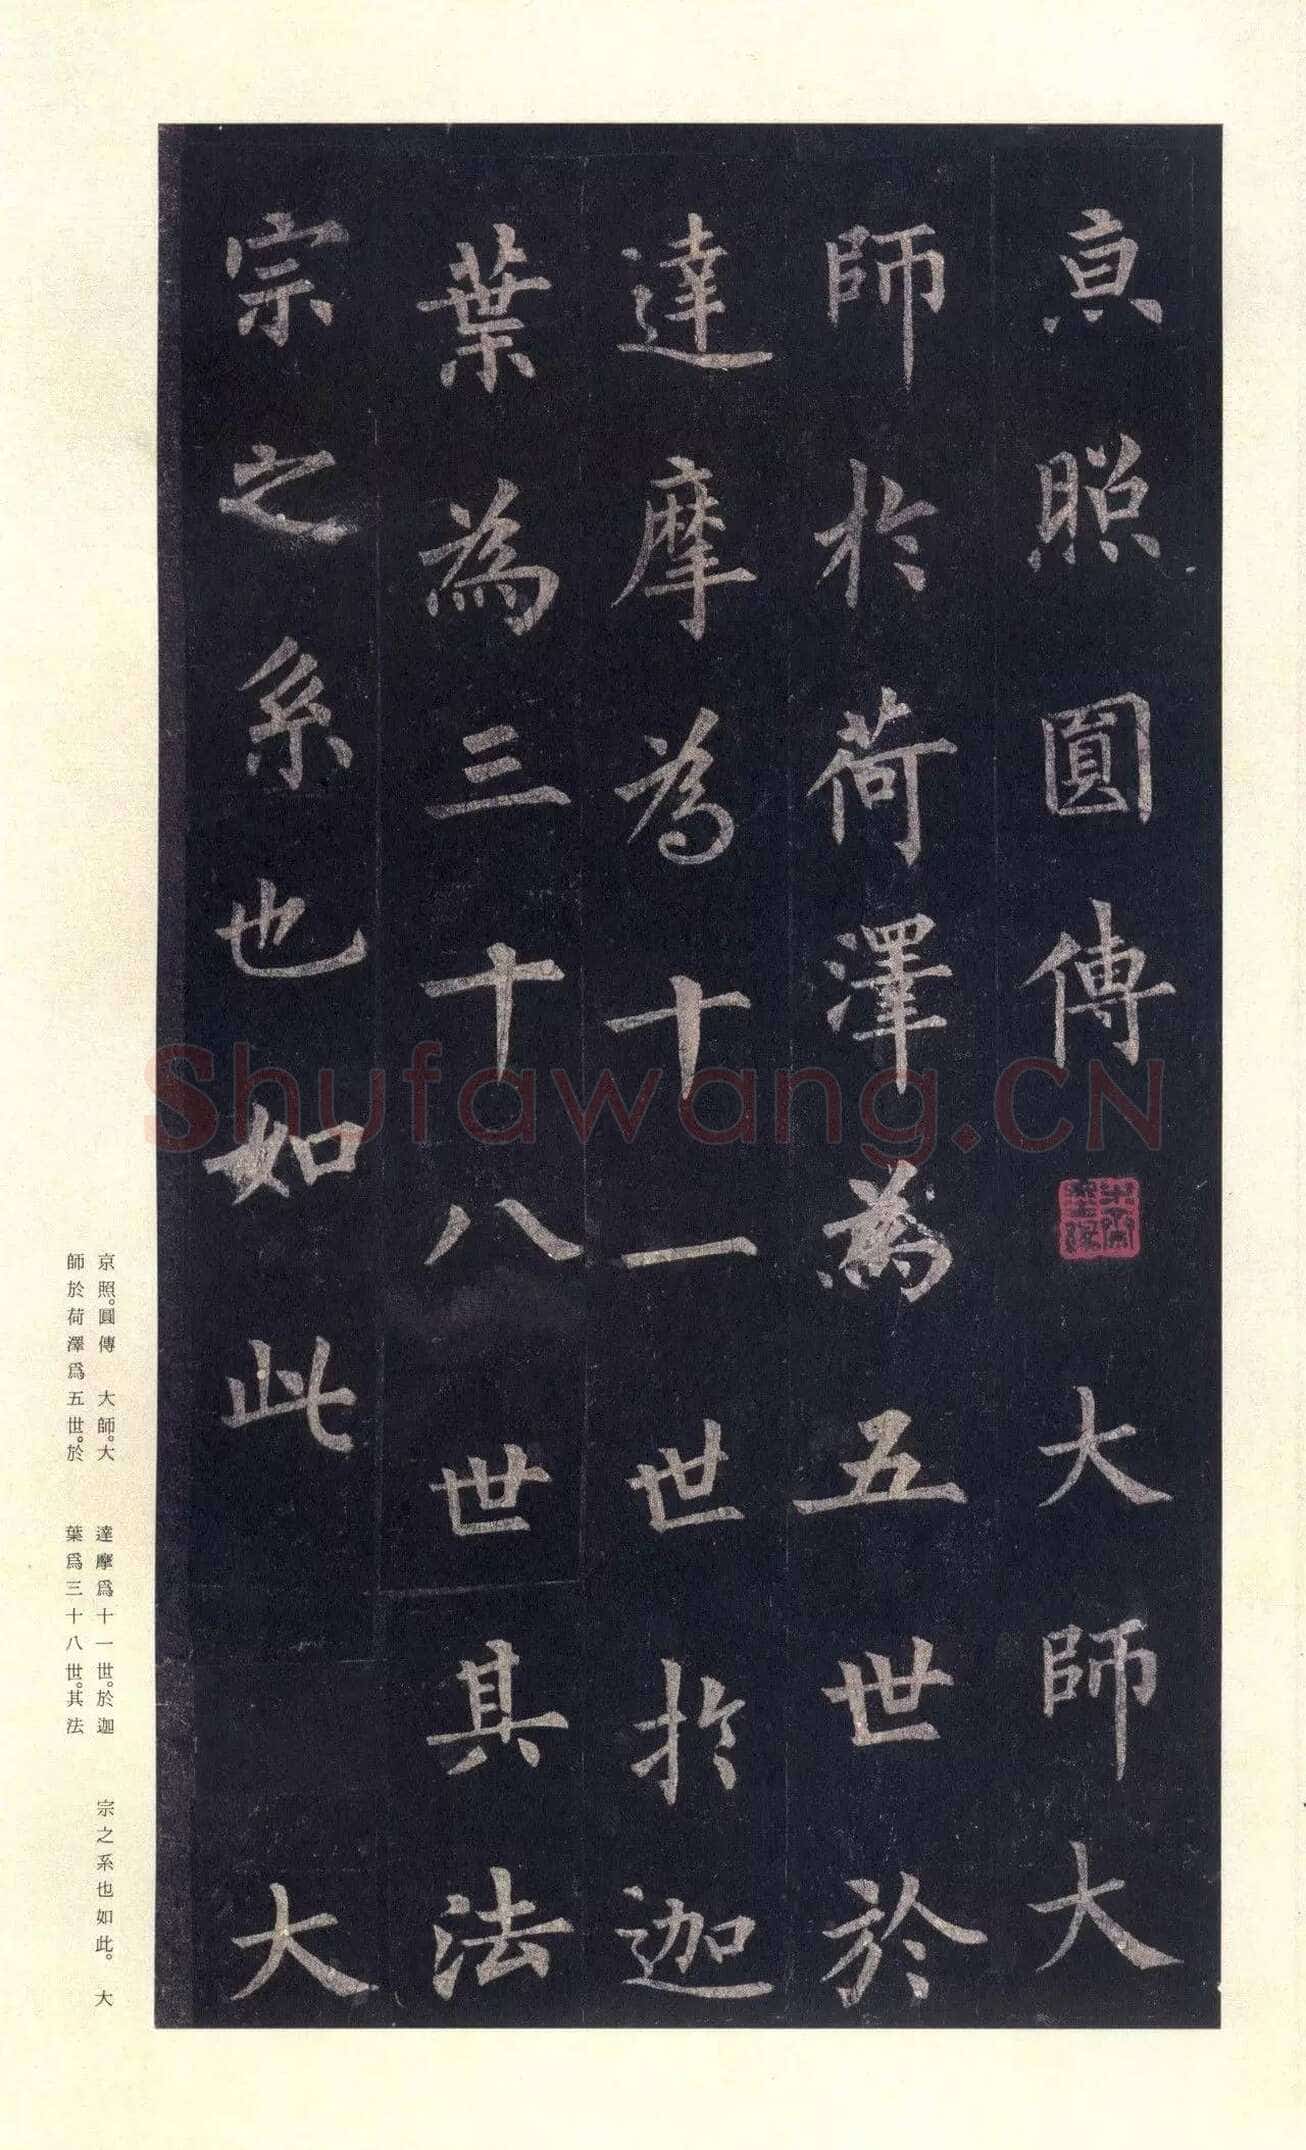 亰照圓傳 大師大
師於荷澤為五世於
達摩為十一世於迦
葉為三十八世其法
宗之系也如此 大
京照。圓傳 大師。大
師於荷澤爲五世。於
達摩爲十一世。於迦
葉爲三十八世。其法
宗之系也如此。 大
Shufawang.CN